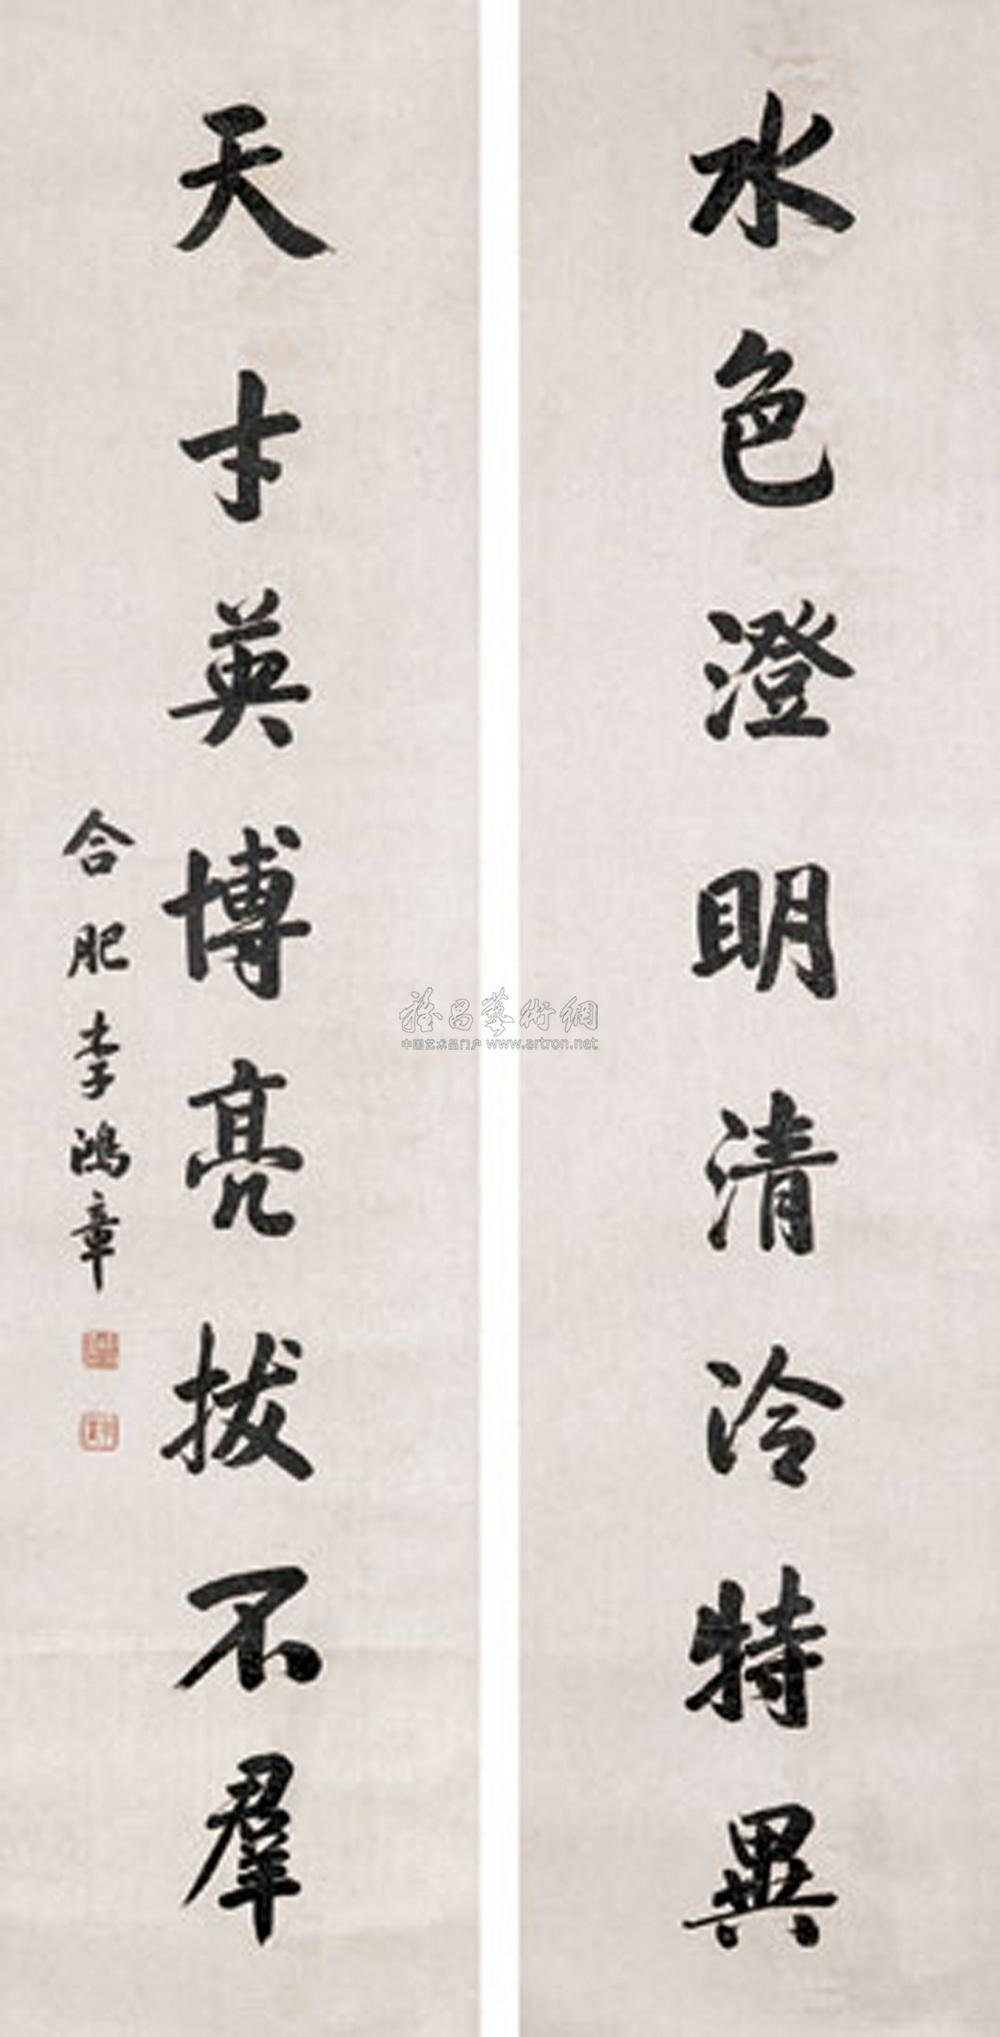 水色澄明清泠特異
天才英博亮拔不羣
合肥李鴻章
雅昌藝術網
中国艺术品门户 www.artron.net